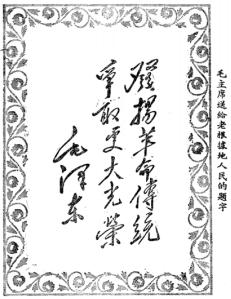 毛主席送給老根據地人民的題字
發揚革命傳統
爭取更大光榮
毛澤東